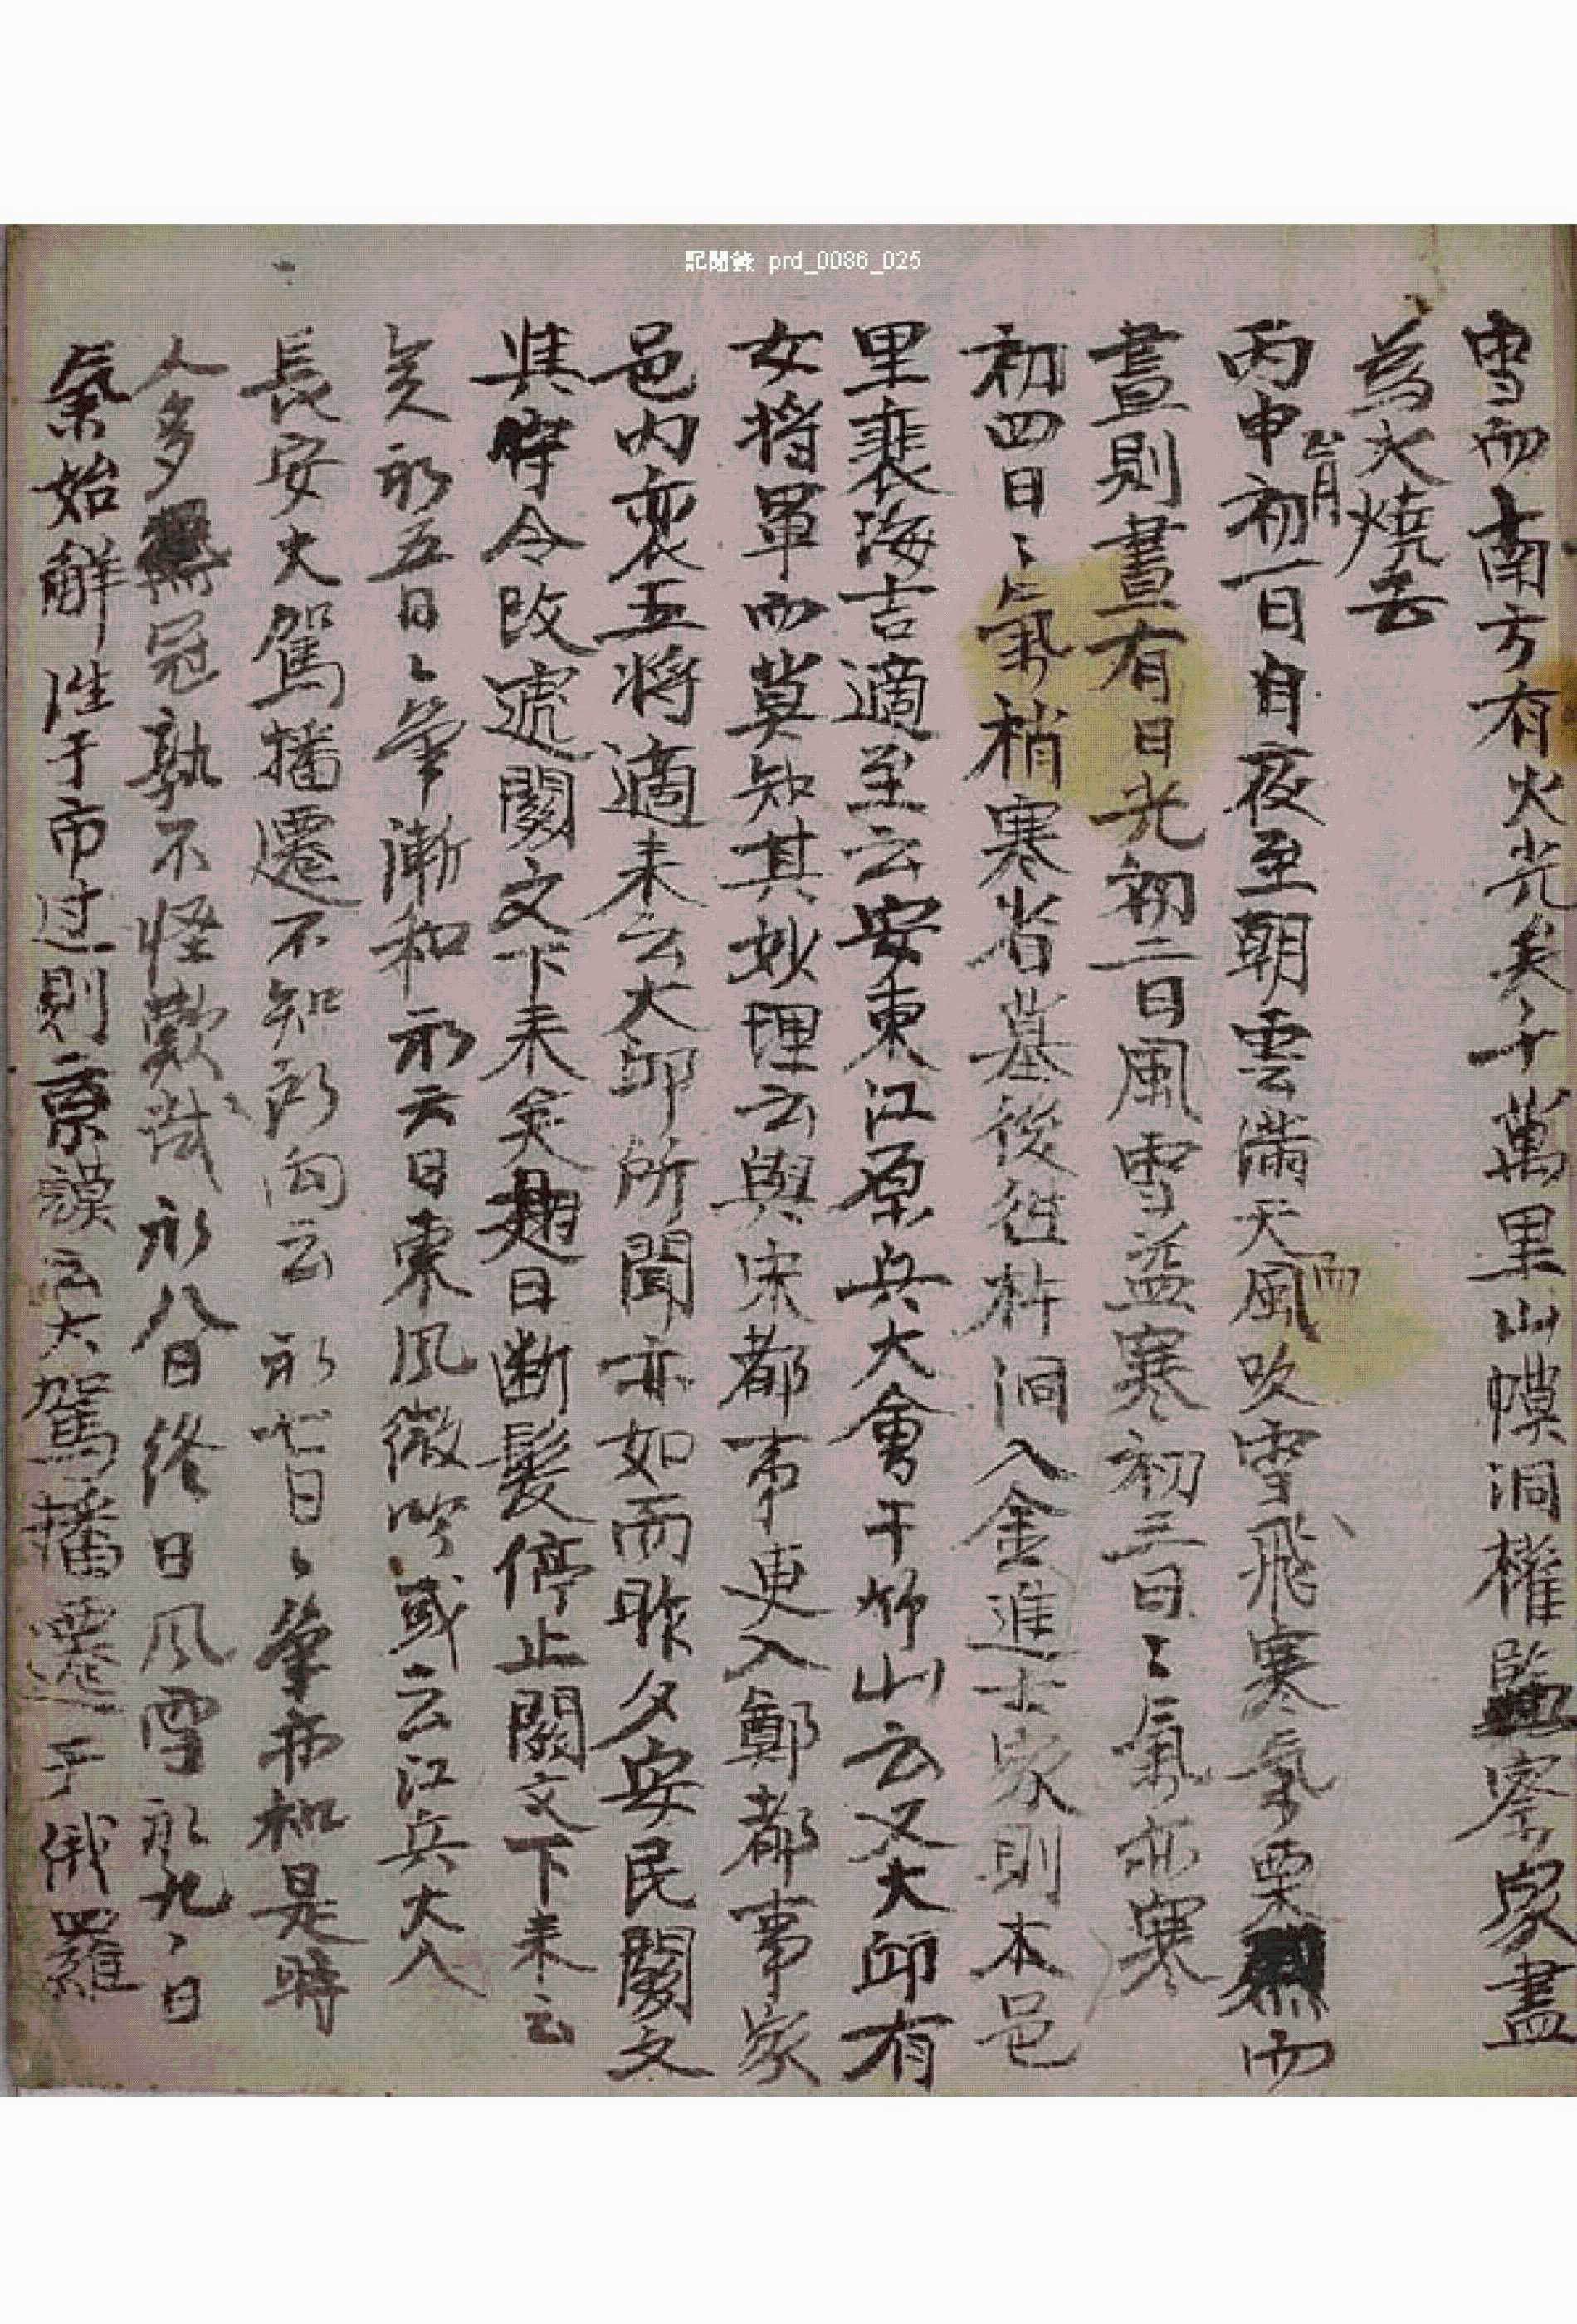 記聞錄 prd_0086_025
雪而南方有火光矣千萬里山幙洞權監察家盡
為火燒云
丙申正月初一日自夜至朝雲滿天而風吹雪飛寒氣栗烈而
晝則晝有日光初二日風雪益寒初三日〻氣亦寒
初四日〻氣稍寒省墓後往杜洞入金進士家則本邑
里裴海吉適至云安東江原兵大會于竹山云又大邱有
女將軍而莫知其妙理云與宋都事更入鄭都事家
邑內裵五將適来云大邱所聞亦如而昨夕安民關文
與時令改處關文下来矣翌日断髮停止關文下来云
矣初五日〻氣漸和初六日東風微吹或云江兵大入
長安大駕播遷不知所向云初七日〻氣亦和是時
人多冠孰不怪歎哉初八日終日風雪初九〻日
氣始解往于市过則京謨云大駕播遷于俄羅